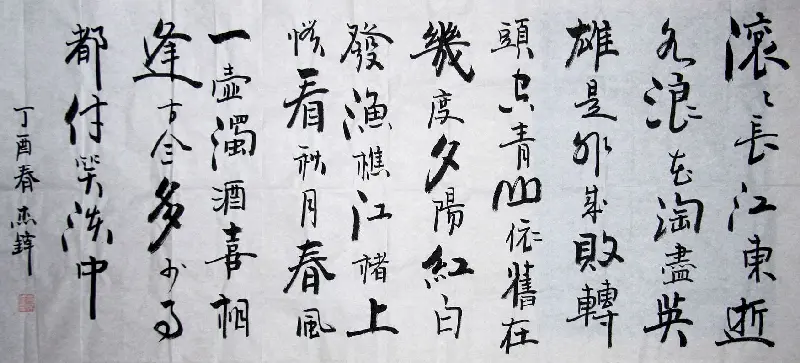 滚〻長江東逝
水浪花淘盡英
雄是非成敗轉
頭空青山依舊在
幾度夕陽紅白
發漁樵江渚上
惯看秋月春風
一壺濁酒喜相
逢古今多少事
都付笑談中
丁酉春杰鋒